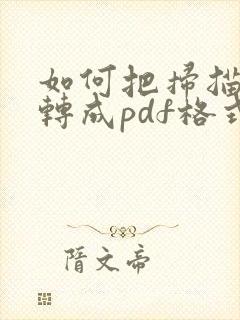 如何把掃描
轉成pdf格式
隋文帝